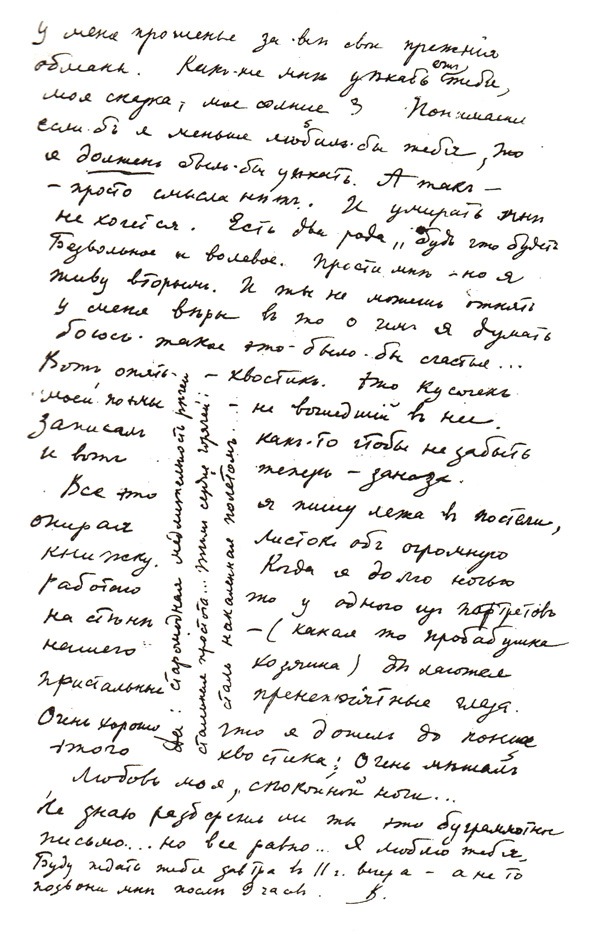 у меня прошенье за всѣ свои прежнія
обманы. Какъ-же мнѣ уѣхать отъ тебя,
моя сказка, мое солнце? Понимаешь
если-бъ я меньше любилъ-бы тебя, то
я долженъ былъ-бы уѣхать. А такъ —
— просто смысла нѣтъ. И умирать мнѣ
не хочется. Есть два рода „будь что будетъ
Безвольное и волевое. Прости мнѣ — но я
живу вторымъ. И ты не можешь отнять
у меня вѣры въ то о чемъ я думать
боюсь — такое это было-бы счастье...
Вотъ опять — — хвостикъ. Это кусочекъ
моей поэмы не вошедшій въ нее.
Записалъ какъ-то чтобы не забыть
и вотъ теперь — заноза.
Все это я пишу лежа въ постели,
опирая листокъ объ огромную
книжку. Когда я долго ночью
работаю то у одного изъ портретовъ
на стѣнѣ — (какая то прабабушка
нашего хозяина) дѣлаются
пристальные пренепріятные глаза.
Очень хорошо что я дошелъ до конца
этого хвостика; Очень мѣшалъ
Да: старомодная медлительность рѣчи
стальная простота... Тѣмъ сердце горячѣй:
сталь накаленная полетомъ...
Любовь моя, спокойной ночи...
Не знаю разберешь ли ты это безграмотное
письмо... но все равно... Я люблю тебя,
Буду ждать тебя завтра въ 11 ч. вечера — а не то
позвони мнѣ послѣ 9 часовъ. В.